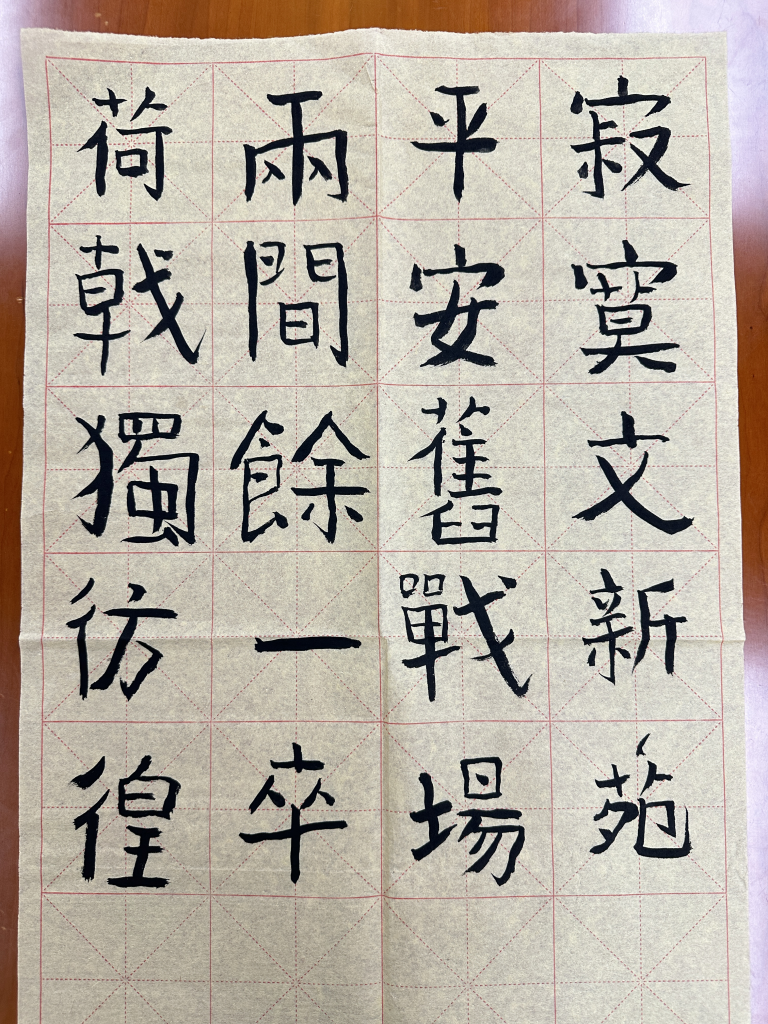 寂寞文新苑
平安舊戰場
兩間餘一卒
荷戟獨彷徨